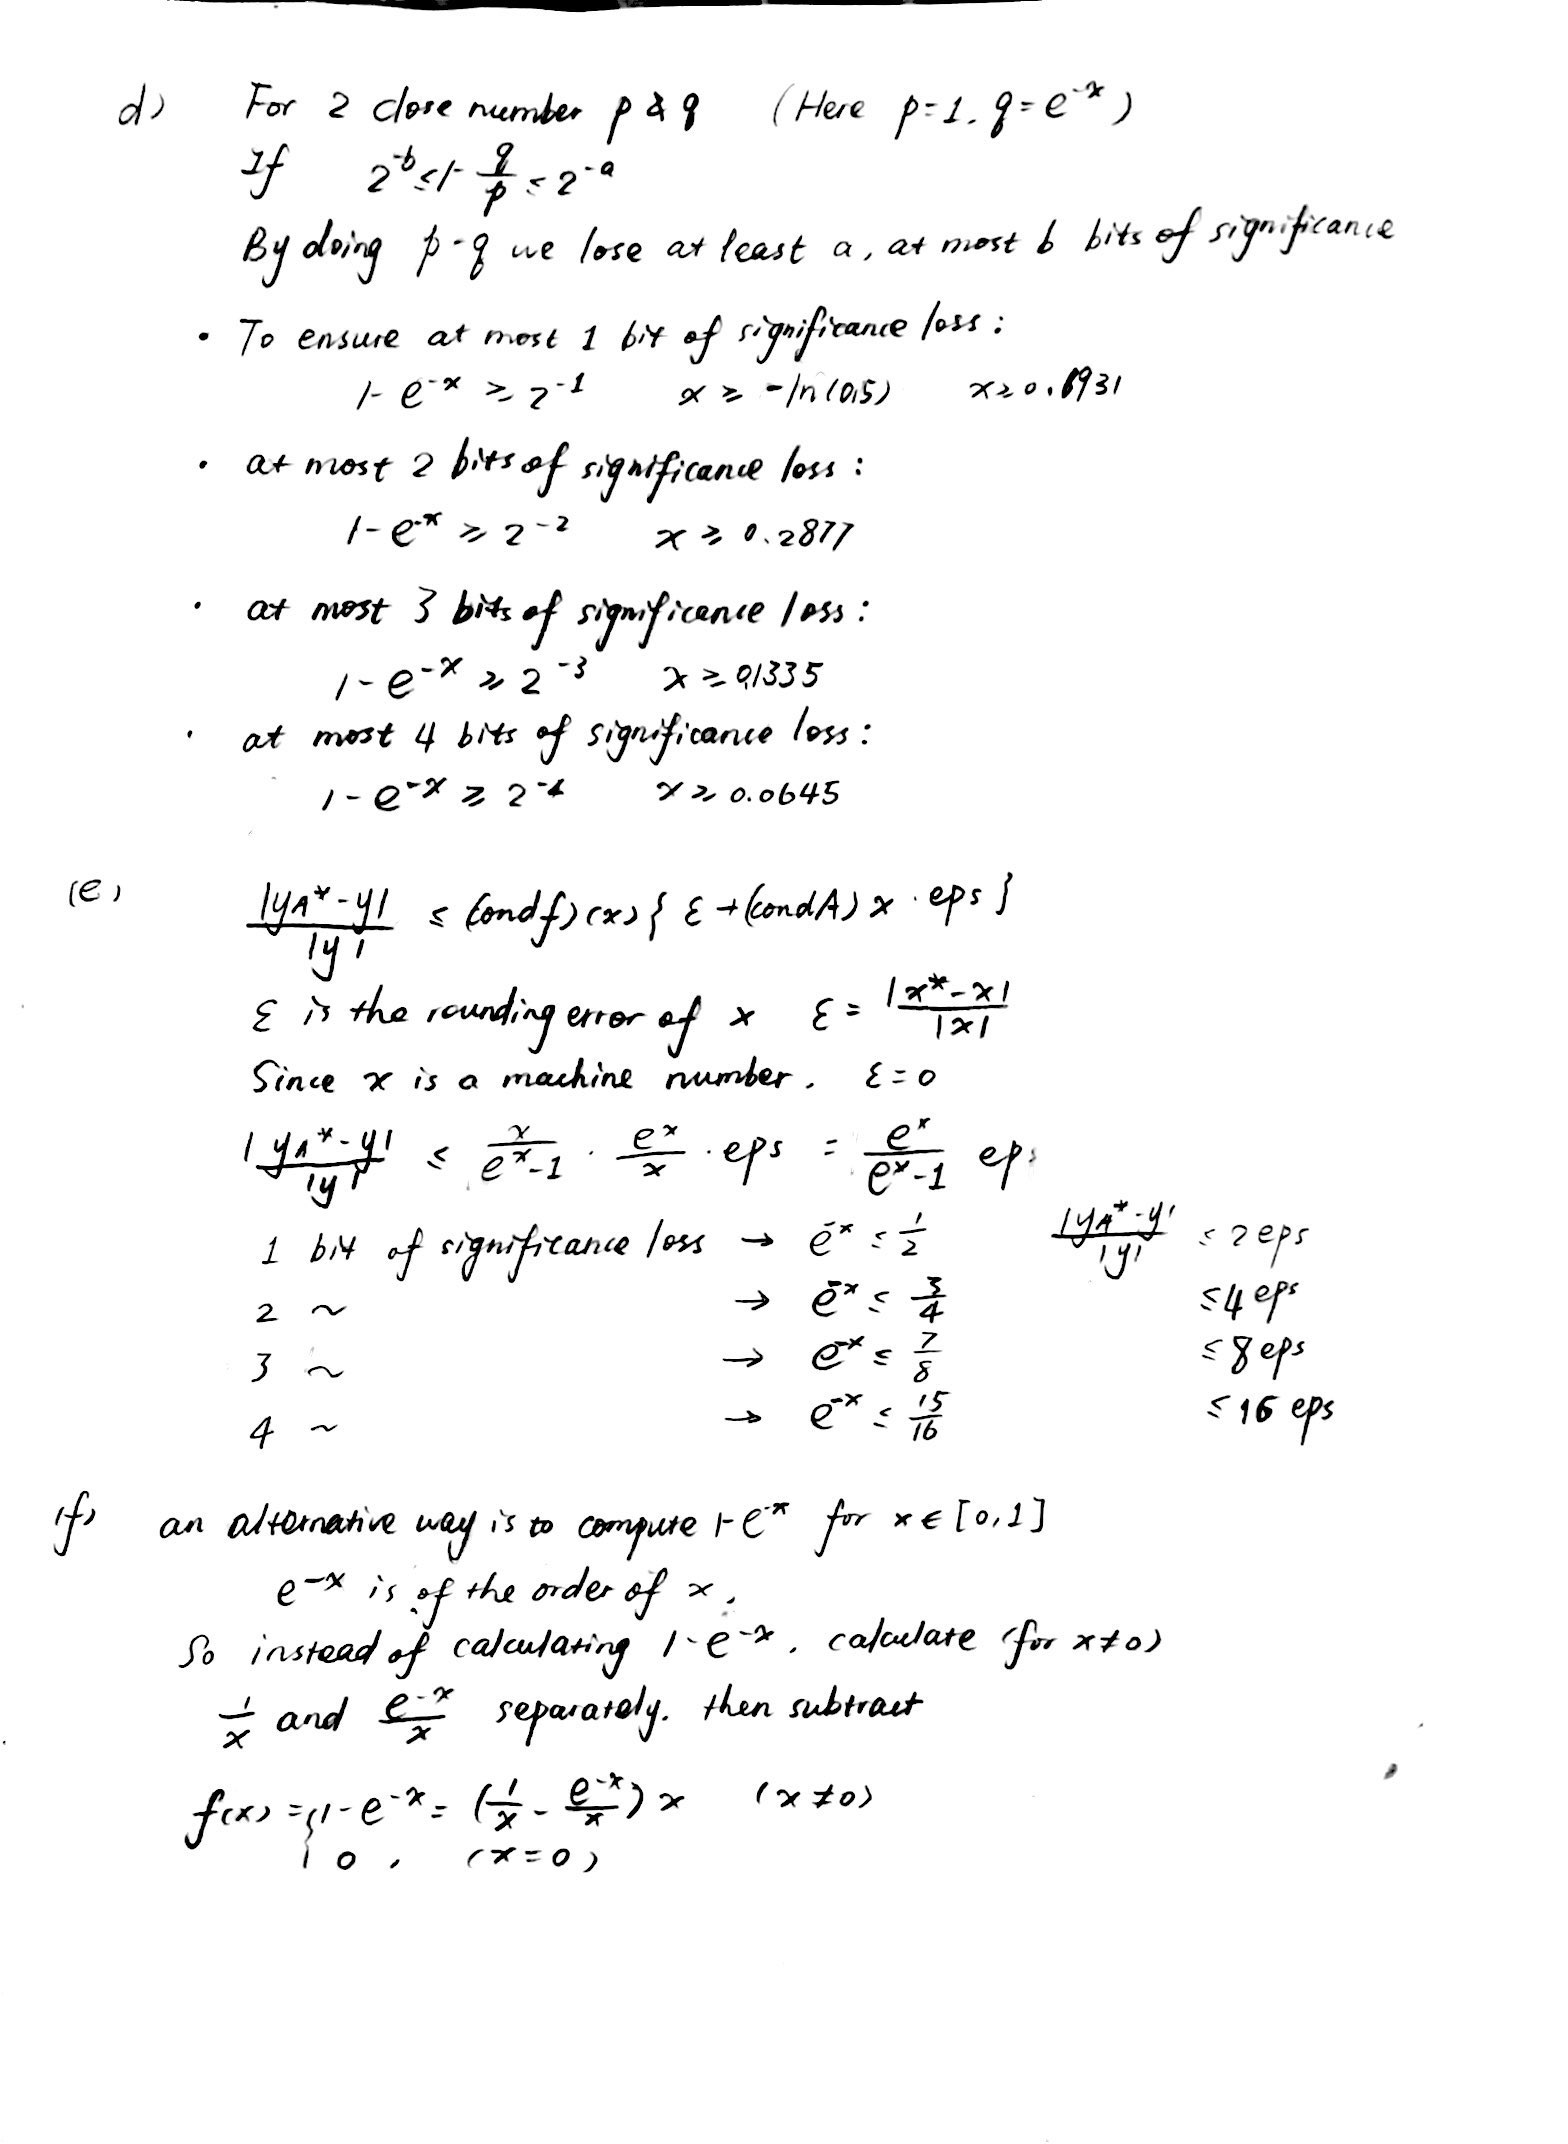 d) For 2 close number p & q (Here p=1. q=e^{-x})
If 2^{-b} ≤ 1-\frac{q}{p} ≤ 2^{-a}
By doing p-q we lose at least a, at most b bits of significance
• To ensure at most 1 bit of significance loss:
1-e^{-x} ≥ 2^{-1} x ≥ -ln(0.5) x ≥ 0.6931
• at most 2 bits of significance loss:
1-e^{-x} ≥ 2^{-2} x ≥ 0.2877
• at most 3 bits of significance loss:
1-e^{-x} ≥ 2^{-3} x ≥ 0.1335
• at most 4 bits of significance loss:
1-e^{-x} ≥ 2^{-4} x ≥ 0.0645
(e) \frac{|y_A*-y|}{|y|} ≤ (condf)(x){ε+(condA)x·eps}
ε is the rounding error of x ε = \frac{|x*-x|}{|x|}
Since x is a machine number. ε=0
\frac{|y_A*-y|}{|y|} ≤ \frac{x}{e^x-1} · \frac{e^x}{x} · eps = \frac{e^x}{e^x-1} eps
1 bit of significance loss → e^{-x} ≤ \frac{1}{2} \frac{|y_A*-y|}{|y|} ≤ 2eps
2 ~ → e^{-x} ≤ \frac{3}{4} ≤4 eps
3 ~ → e^{-x} ≤ \frac{7}{8} ≤8 eps
4 ~ → e^{-x} ≤ \frac{15}{16} ≤16 eps
(f) an alternative way is to compute 1-e^{-x} for x ∈ [0,1]
e^{-x} is of the order of x.
So instead of calculating 1-e^{-x}. calculate (for x≠0)
\frac{1}{x} and \frac{e^{-x}}{x} separately. then subtract
f(x) = { 1-e^{-x} = (\frac{1}{x} - \frac{e^{-x}}{x}) x (x≠0)
0, (x=0)